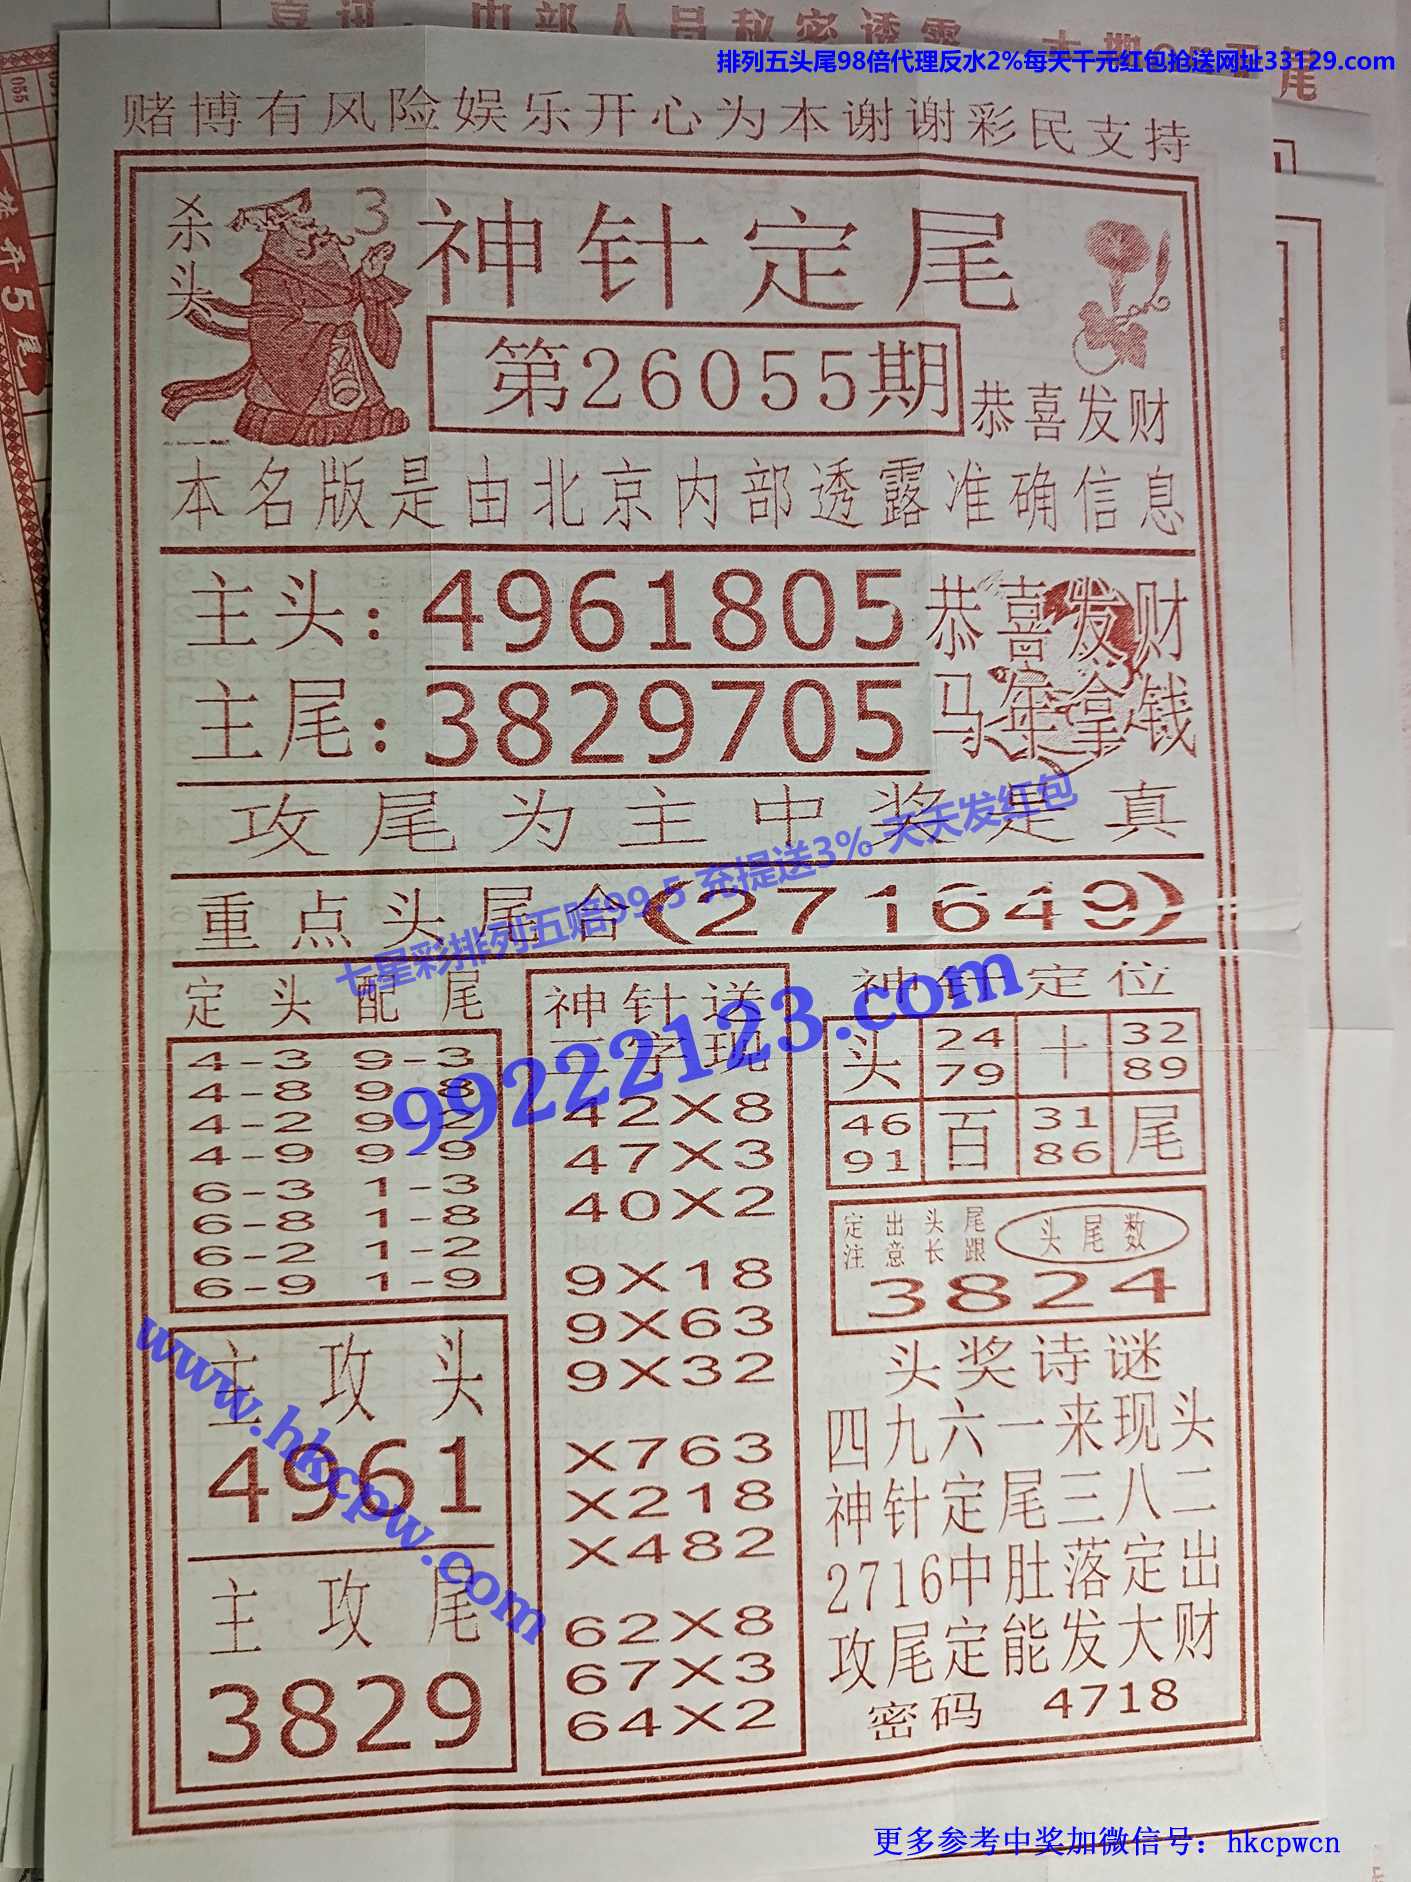 排列五头尾98倍代理反水2%每天千元红包抢送网址33129.com
赌博有风险娱乐开心为本谢谢彩民支持
杀头
3
神针定尾
第26055期
恭喜发财
本名版是由北京内部透露准确信息
主头：4961805
恭喜发财
主尾：3829705
马年拿钱
攻尾为主中奖是真
七星彩排列五赔99.5 充提送3% 天天发红包
重点头尾合（271649）
定头配尾
4-3 9-3
4-8 9-8
4-2 9-2
4-9 9-9
6-3 1-3
6-8 1-8
6-2 1-2
6-9 1-9
主攻头
4961
主攻尾
3829
神针送
三字现
42X8
47X3
40X2
9X18
9X63
9X32
X763
X218
X482
62X8
67X3
64X2
99222123.com
www.hkcpw.com
神针定位
头 24 十 32
79 89
46 百 31 尾
91 86
定出头尾
注意长跟
头尾数
3824
头奖诗谜
四九六一来现头
神针定尾三八二
2716中肚落定出
攻尾定能发大财
密码 4718
更多参考中奖加微信号：hkcpwcn
5尾
055